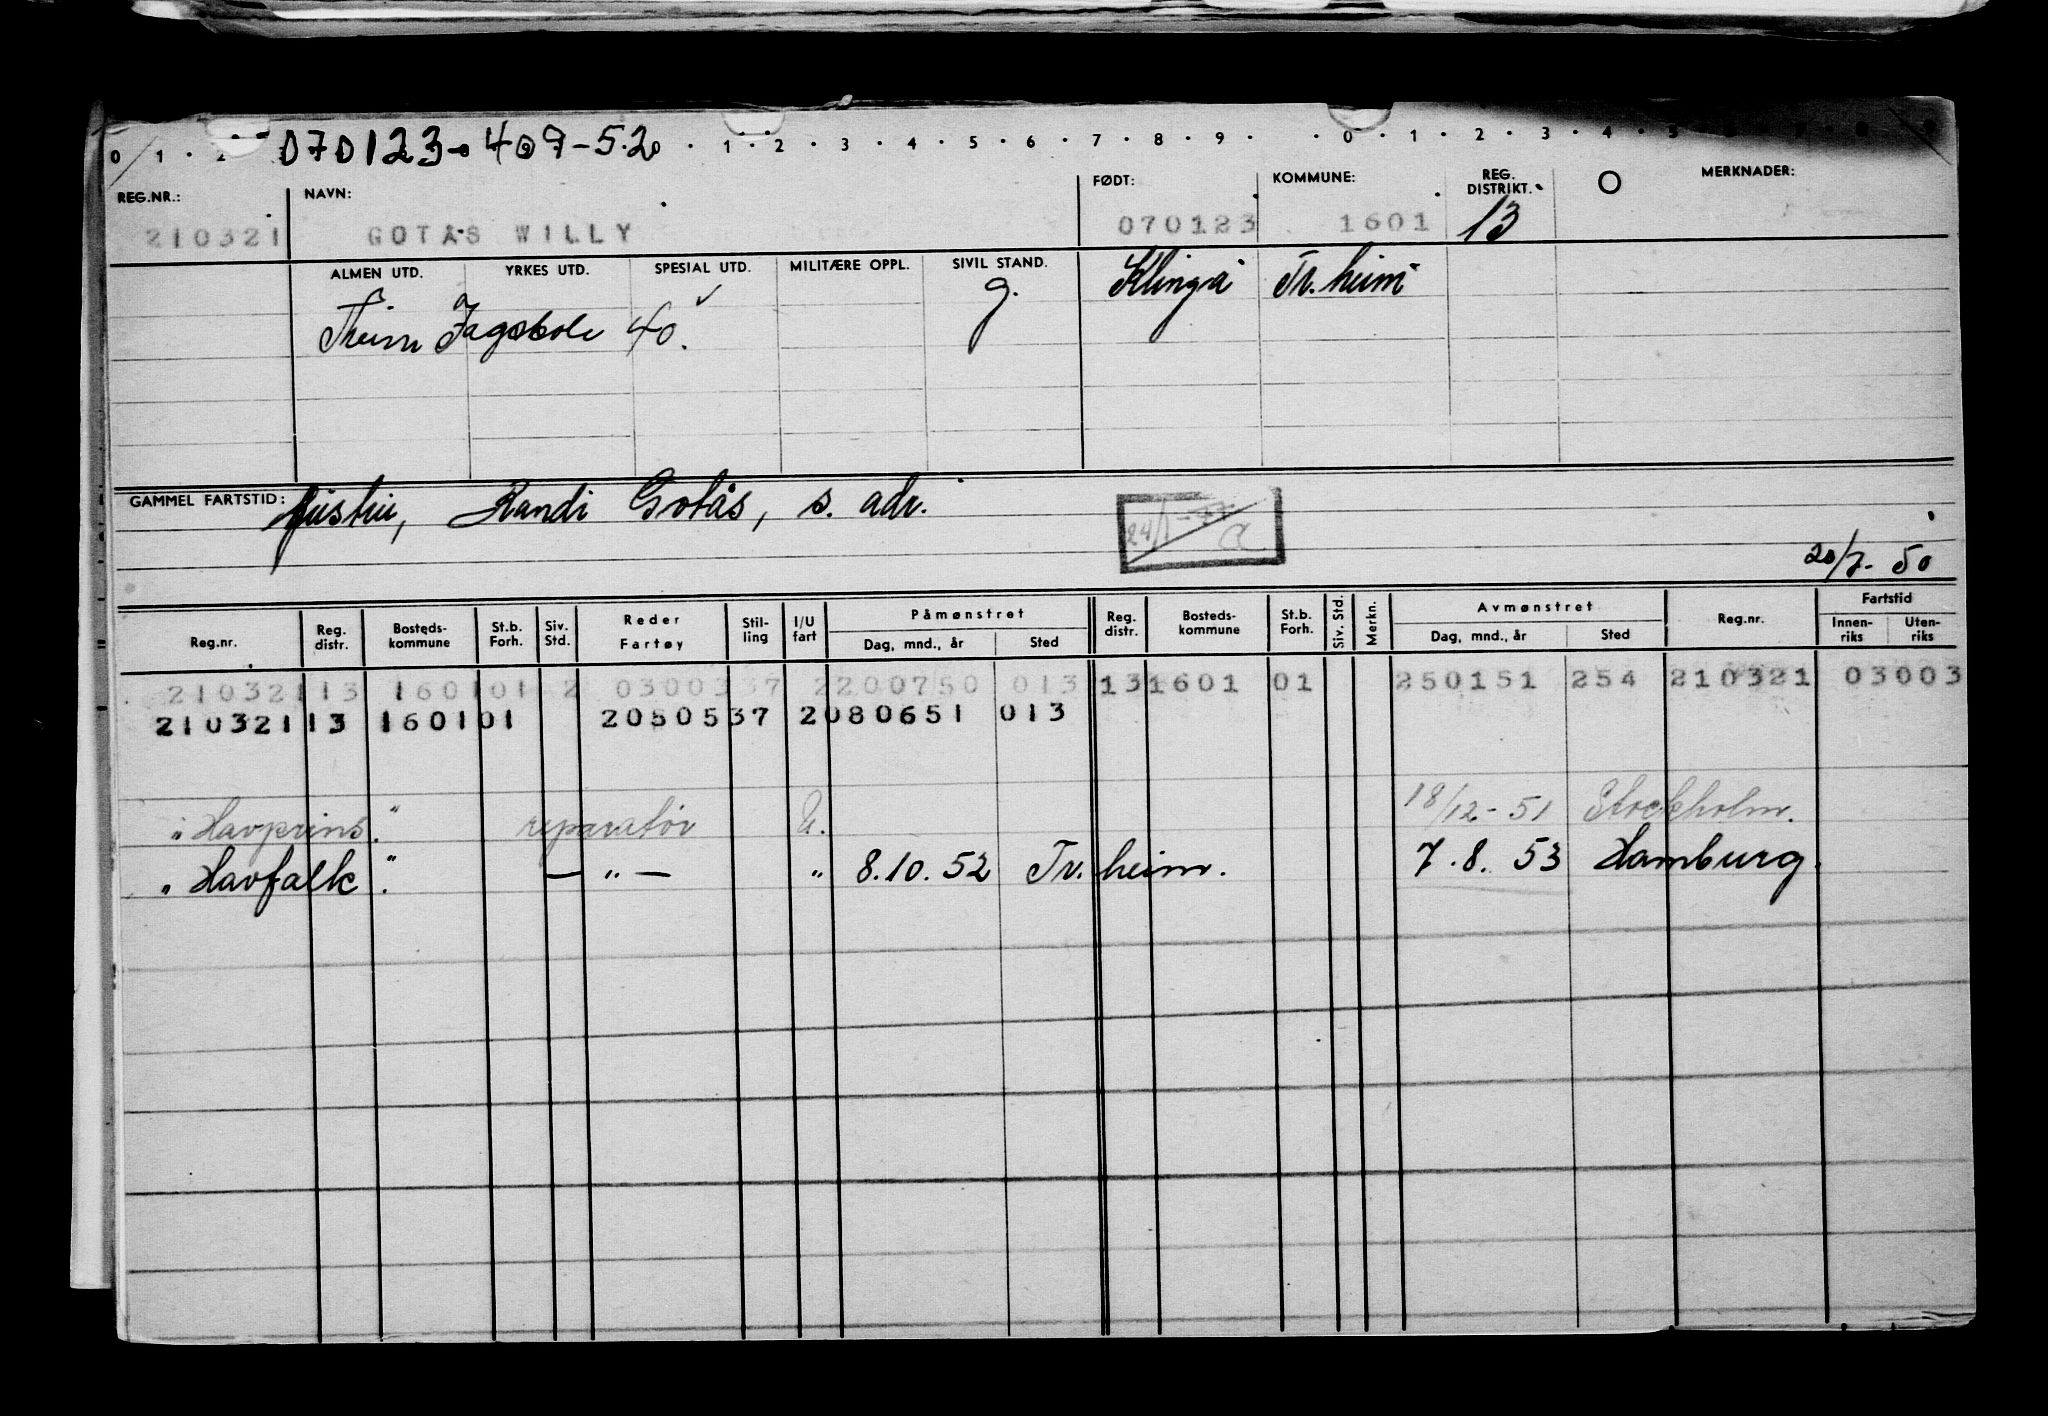 070123-409-52
0 1 2 1 2 3 4 5 6 7 8 9 0 1 2 3 4 5
REG.NR.: NAVN: FØDT: KOMMUNE: REG. DISTRIKT. O MERKNADER:
210321 GOTAS WILLY 070123 1601 13
ALMEN UTD. YRKES UTD. SPESIAL UTD. MILITÆRE OPPL. SIVIL STAND. Klinga Tr.heim
Fagskole 40. g.
GAMMEL FARTSTID: Hustru, Randi Gotås, s. adr.
24/1-77 a
20/7-50
Reg.nr. Reg. distr. Bosteds-kommune St.b. Forh. Siv. Std. Reder Fartøy Stil-ling I/U fart Påmønstret Dag, mnd., år Sted Reg. distr. Bosteds-kommune St.b. Forh. Siv. Std. Merkn. Avmønstret Dag, mnd., år Sted Reg.nr. Fartstid Innen-riks Uten-riks
210321 13 1601 01 2 03003 37 2 200750 013 13 1601 01 250151 254 210321 03003
210321 13 1601 01 20505 37 2 080651 013
"Havprins." reparatør U. 18/12-51 Stockholm.
"Havfalk." — " — " 8.10.52 Tr.heim. 7.8.53 Hamburg.